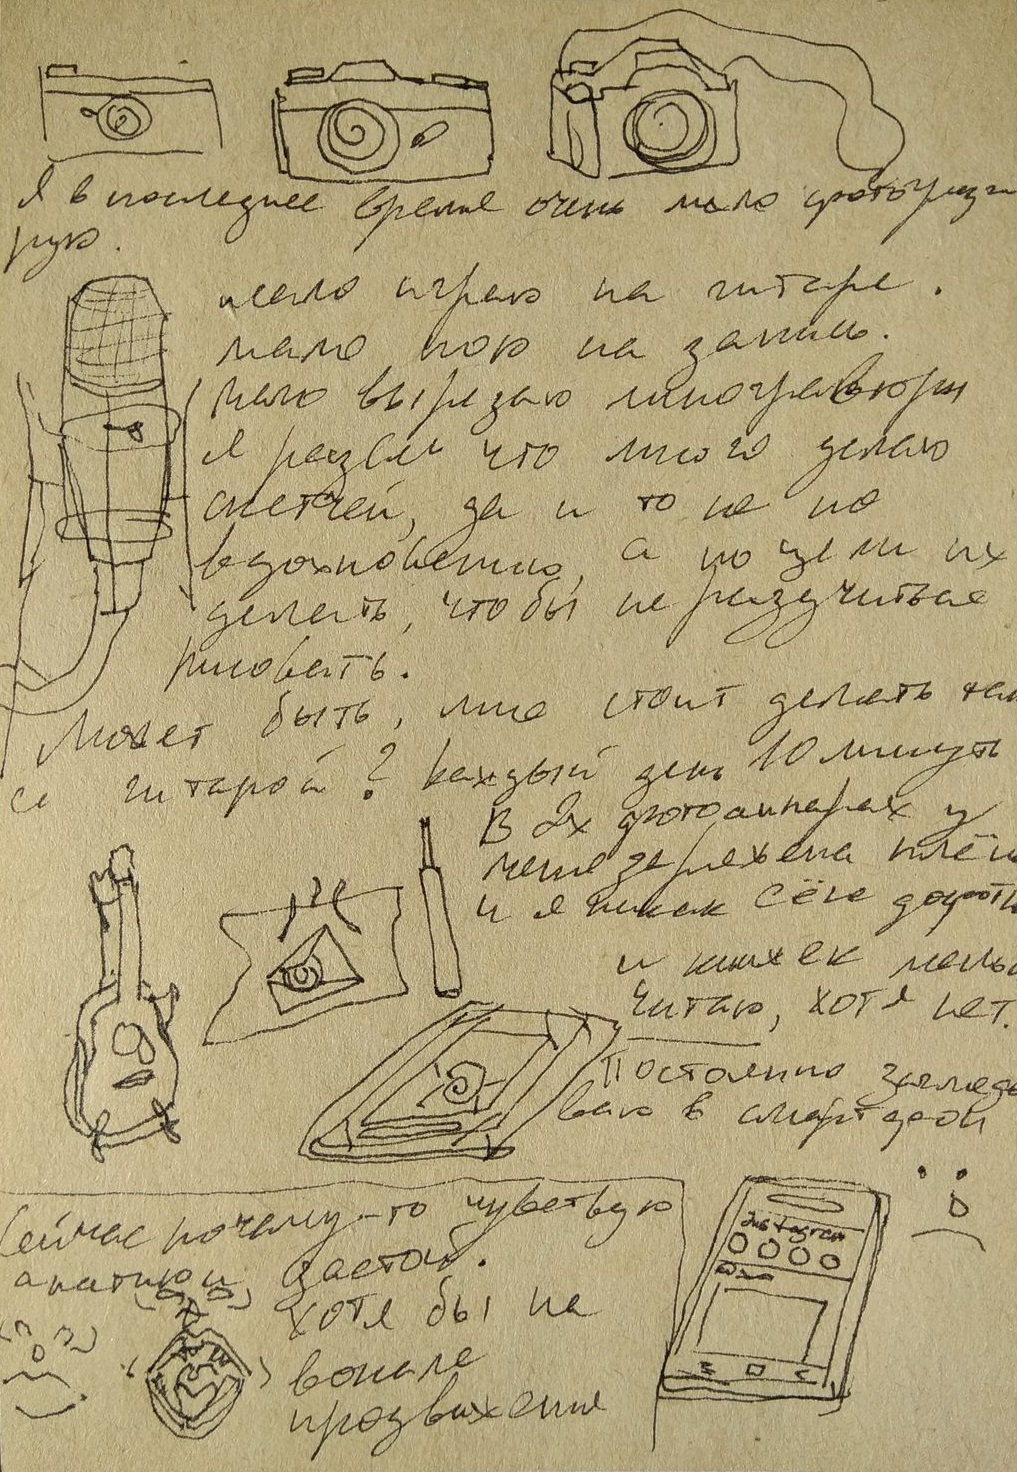 Я в последнее время очень мало фотографи
рую.
мало играю на гитаре.
мало пою на запись.
мало вырезаю линогравюры
я разве что много делаю
скетчей, да и то не по
вдохновению, а по цели их
делать, чтобы не разучиться
рисовать.
Может быть, мне стоит делать так
с гитарой? Каждый день 10 минут
В 2х фотоаппарах у
меня заряжена плён
и я никак её не
и книжек меньш
читаю, хотя нет.
Постоянно заглядь
ваю в смартфон
Instagram
Сейчас почему-то чувствую
апатию и застой.
хотя бы на
вокале
продвижение